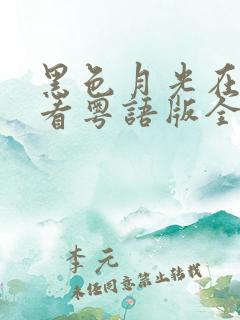 黑色月光在
看粵語版全
李元
未经同意禁止转载